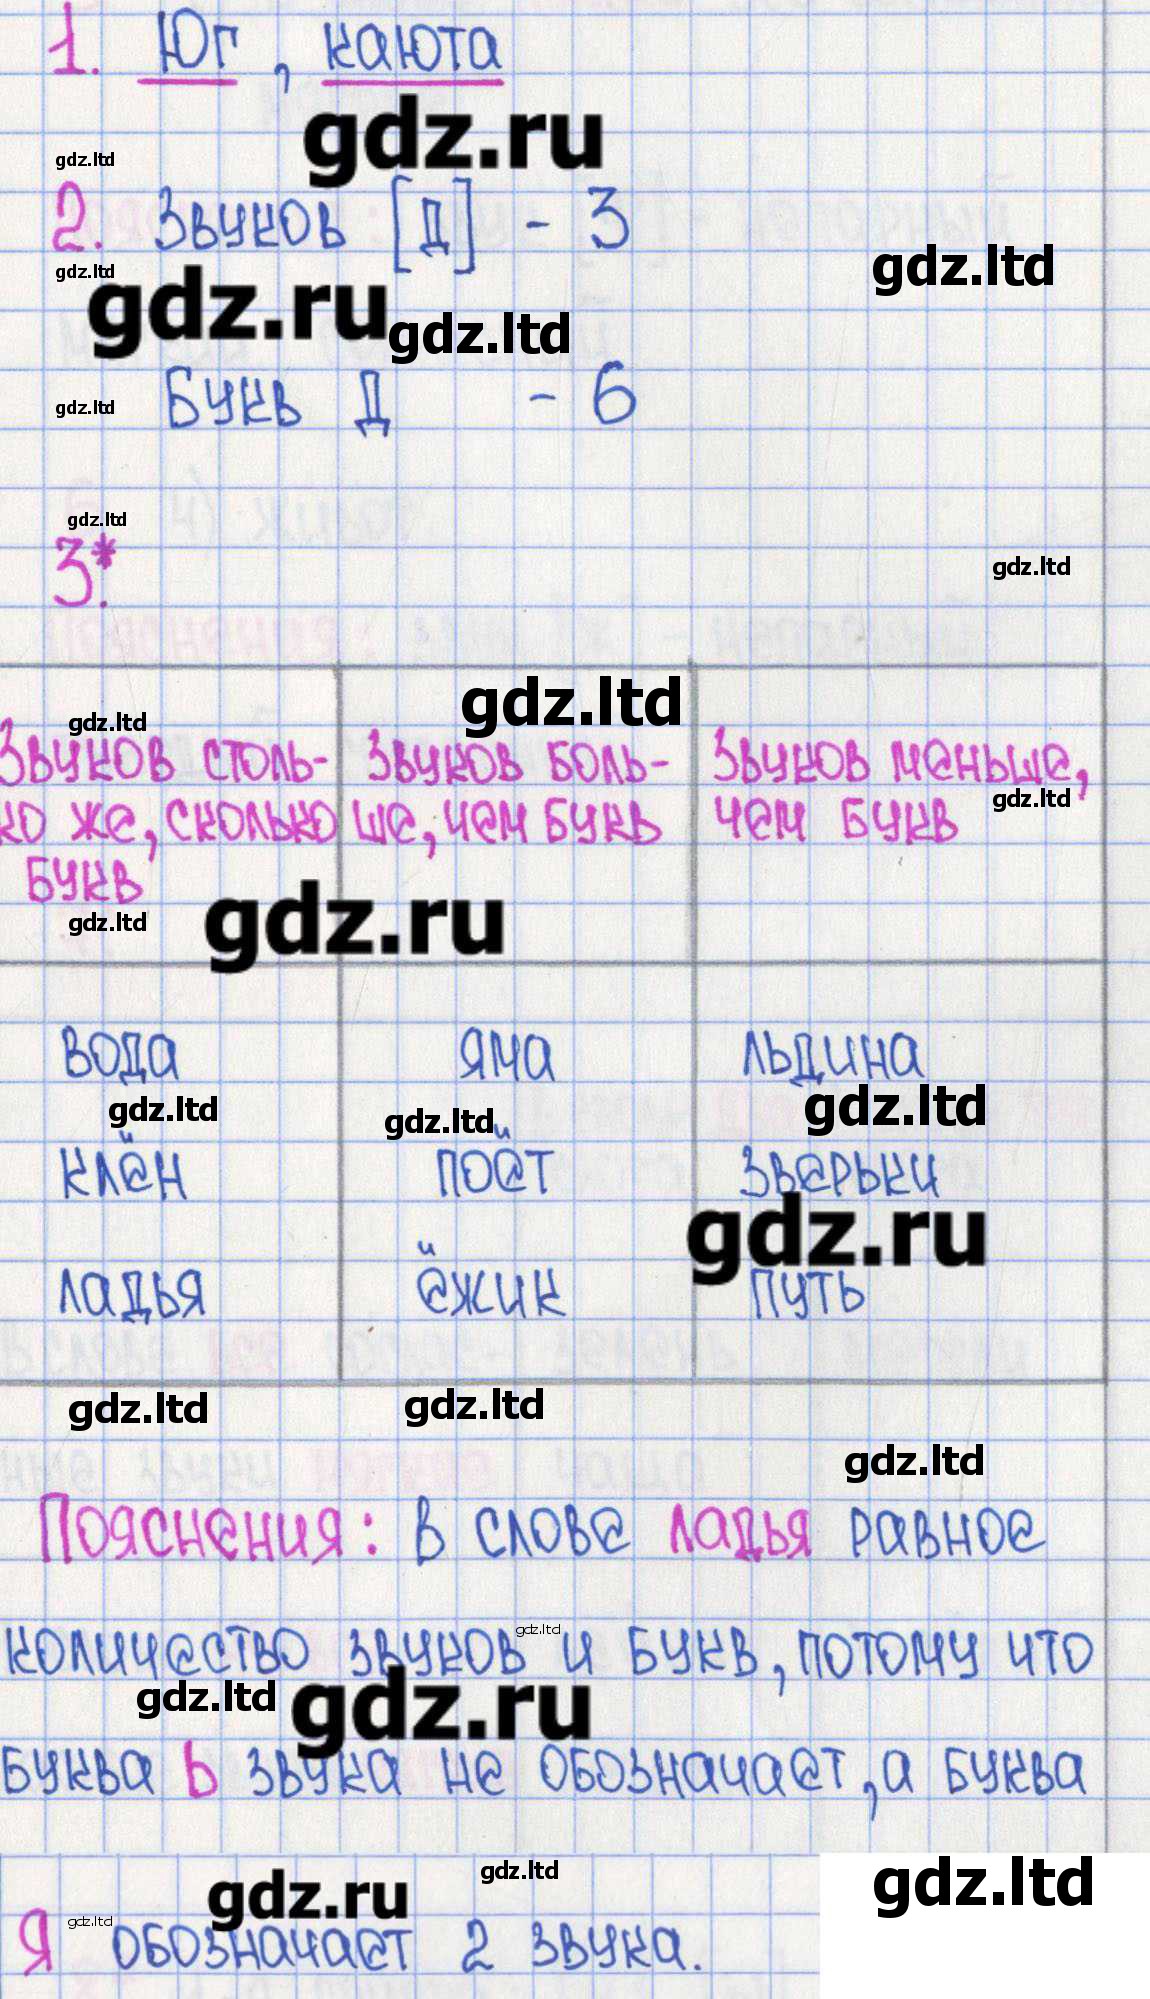 1. Юг, каюта
gdz.ru
gdz.ltd
2. Звуков [д] - 3
gdz.ltd
gdz.ltd
gdz.ru
gdz.ltd
Букв Д - 6
gdz.ltd
gdz.ltd
3.*
gdz.ltd
gdz.ltd
gdz.ltd
Звуков столь- Звуков боль- Звуков меньше,
ко же, сколько ше, чем букв чем букв
gdz.ltd
букв
gdz.ru
gdz.ltd
вода яма льдина
gdz.ltd
gdz.ltd
gdz.ltd
клён поёт зверьки
gdz.ru
ёжик
ладья путь
gdz.ltd
gdz.ltd
gdz.ltd
Пояснения: в слове ладья равное
gdz.ltd
количество звуков и букв, потому что
gdz.ltd
gdz.ru
буква ь звука не обозначает, а буква
gdz.ltd
gdz.ltd
gdz.ru
gdz.ltd
я обозначает 2 звука.